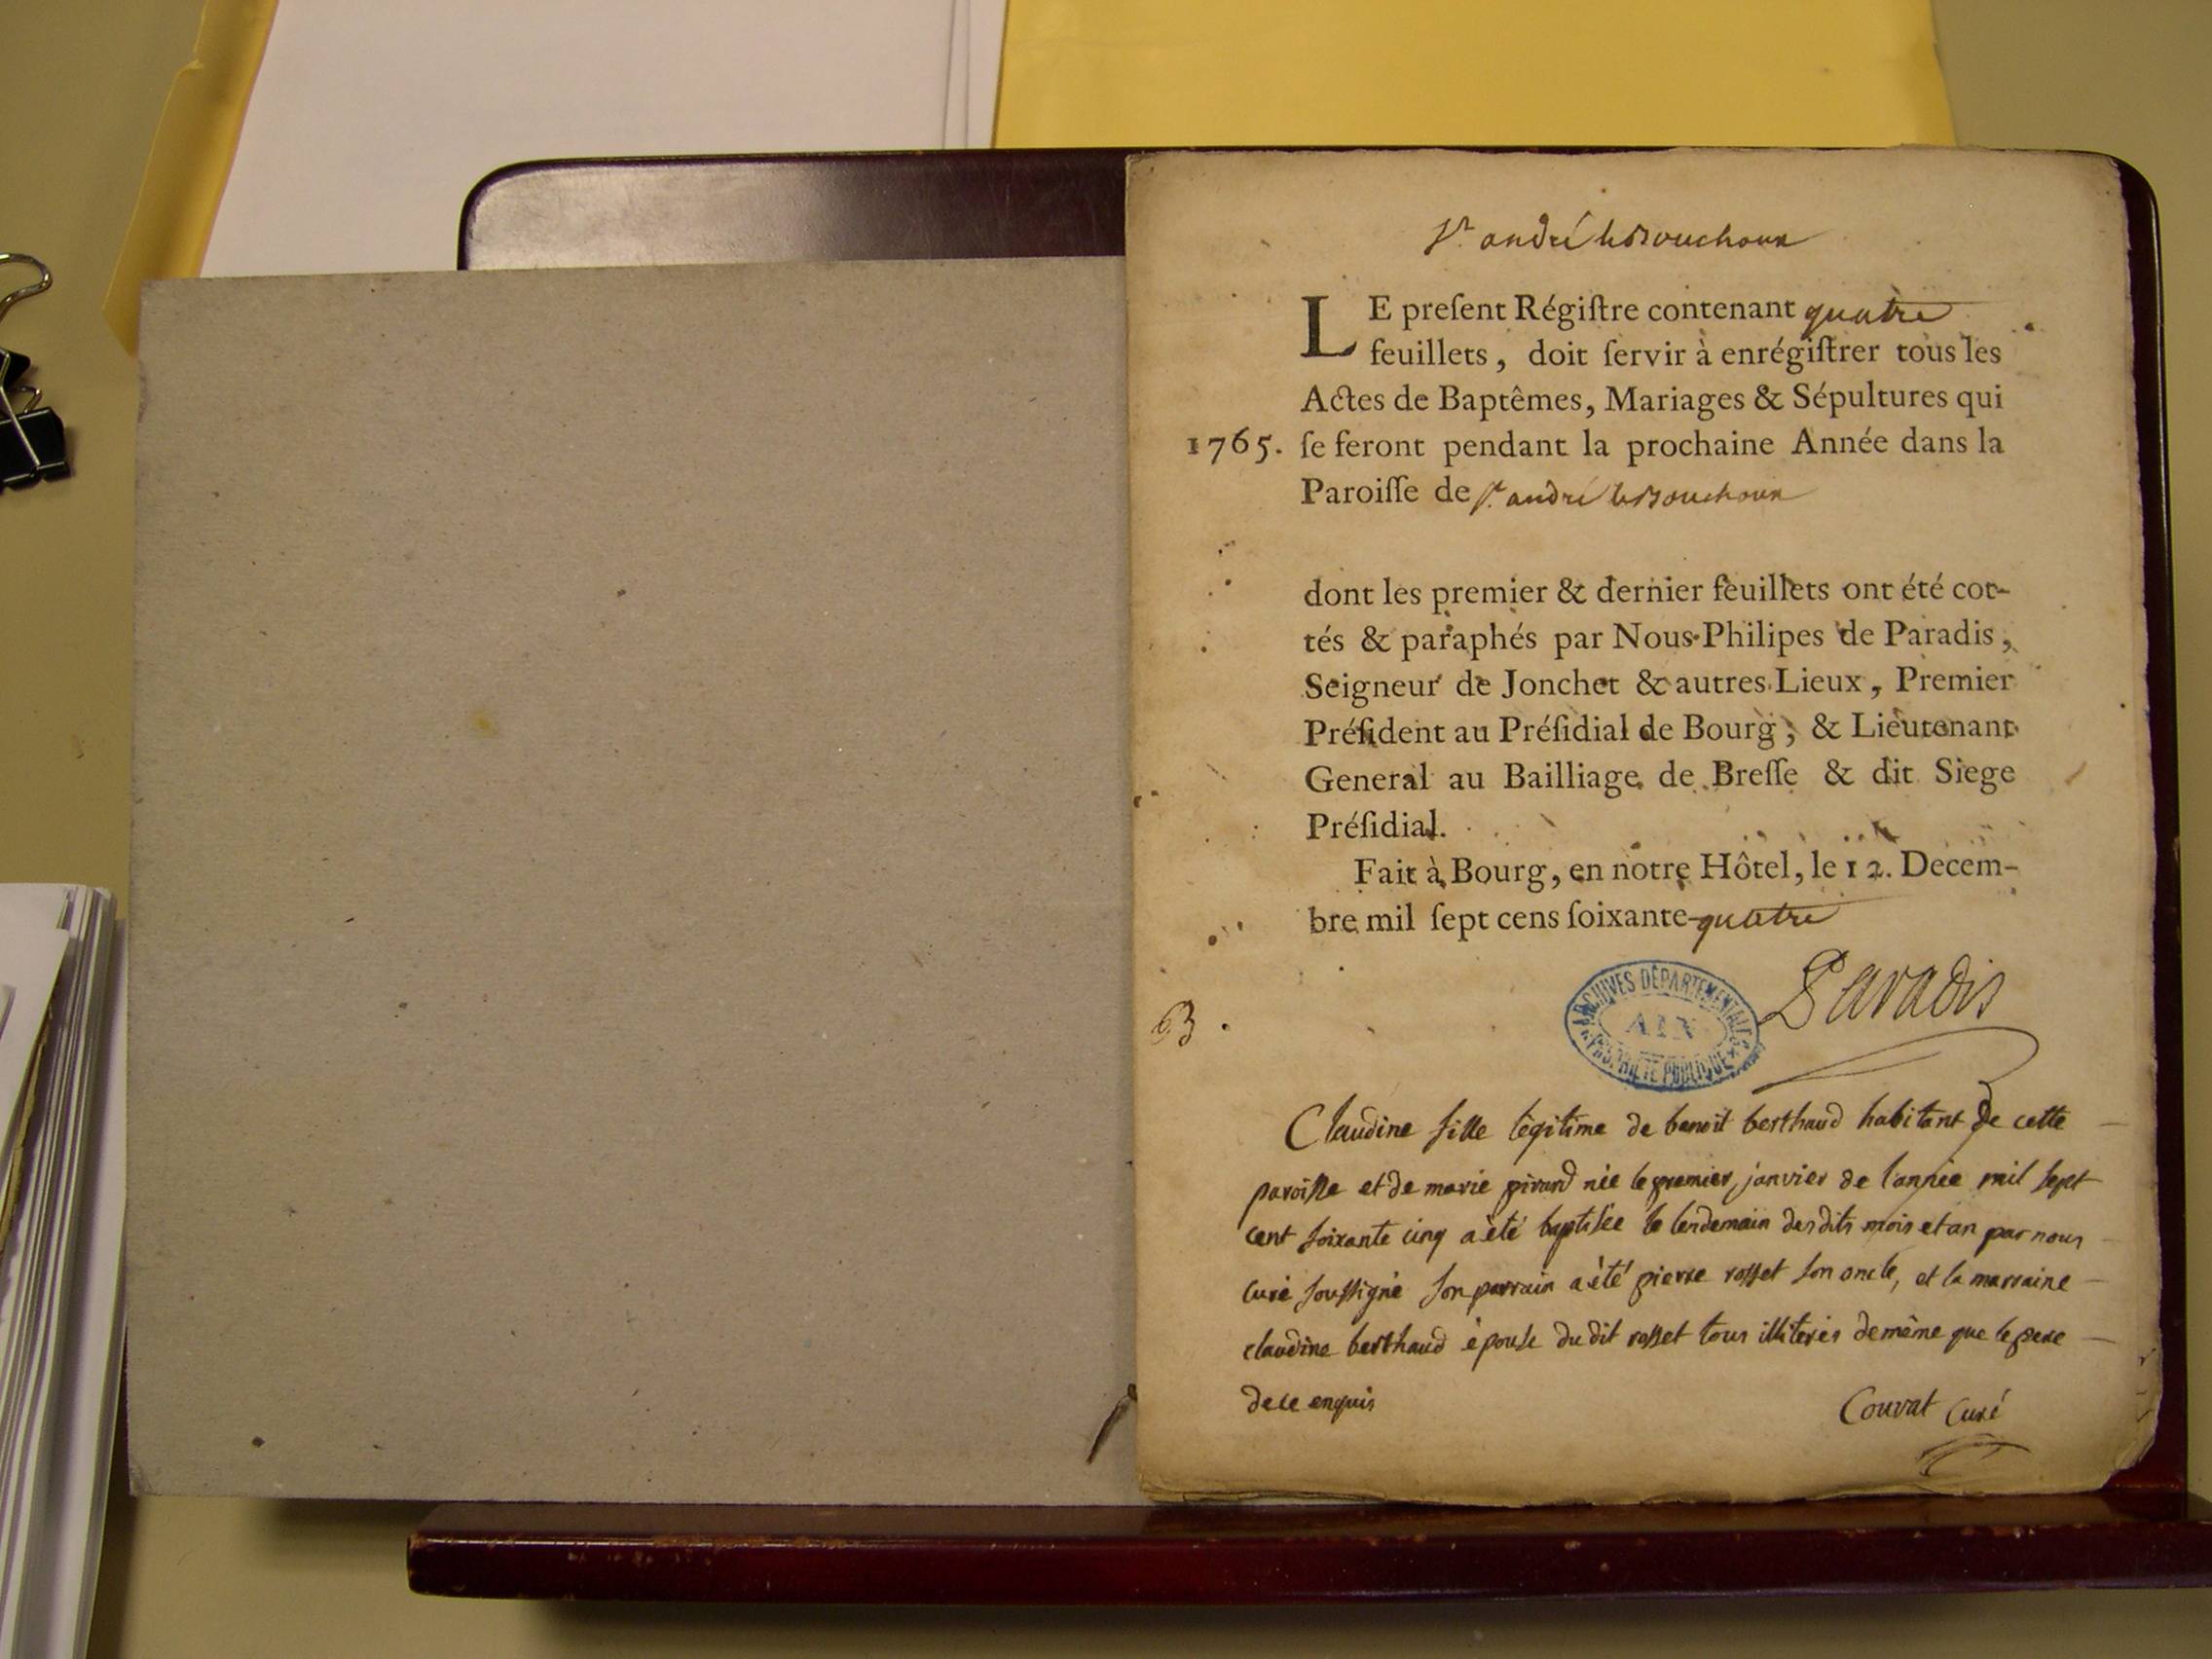 St. andré le Bouchoux
LE preſent Régiſtre contenant quatre
feuillets, doit ſervir à enrégiſtrer tous les
Actes de Baptêmes, Mariages & Sépultures qui
1765. ſe feront pendant la prochaine Année dans la
Paroiſſe de St. andré le Bouchoux
dont les premier & dernier feuillets ont été cot-
tés & paraphés par Nous Philipes de Paradis,
Seigneur de Jonchet & autres Lieux, Premier
Préſident au Préſidial de Bourg, & Lieutenant
General au Bailliage de Breſſe & dit Siege
Préſidial.
Fait à Bourg, en notre Hôtel, le 12. Decem-
bre mil ſept cens ſoixante-quatre
Paradis
ARCHIVES DÉPARTEMENTALES
AIN
PROPRIÉTÉ PUBLIQUE
B
Claudine fille légitime de benoit berthaud habitant de cette
paroisse et de marie pirard née le premier janvier de l'année mil sept
cent soixante cinq a été baptisée le lendemain des dits mois et an par nous
curé soussigné son parrain a été pierre rosset son oncle, et la marraine
claudine berthaud épouse du dit rosset tous illiterés de même que le pere
de ce enquis
Couvat Curé